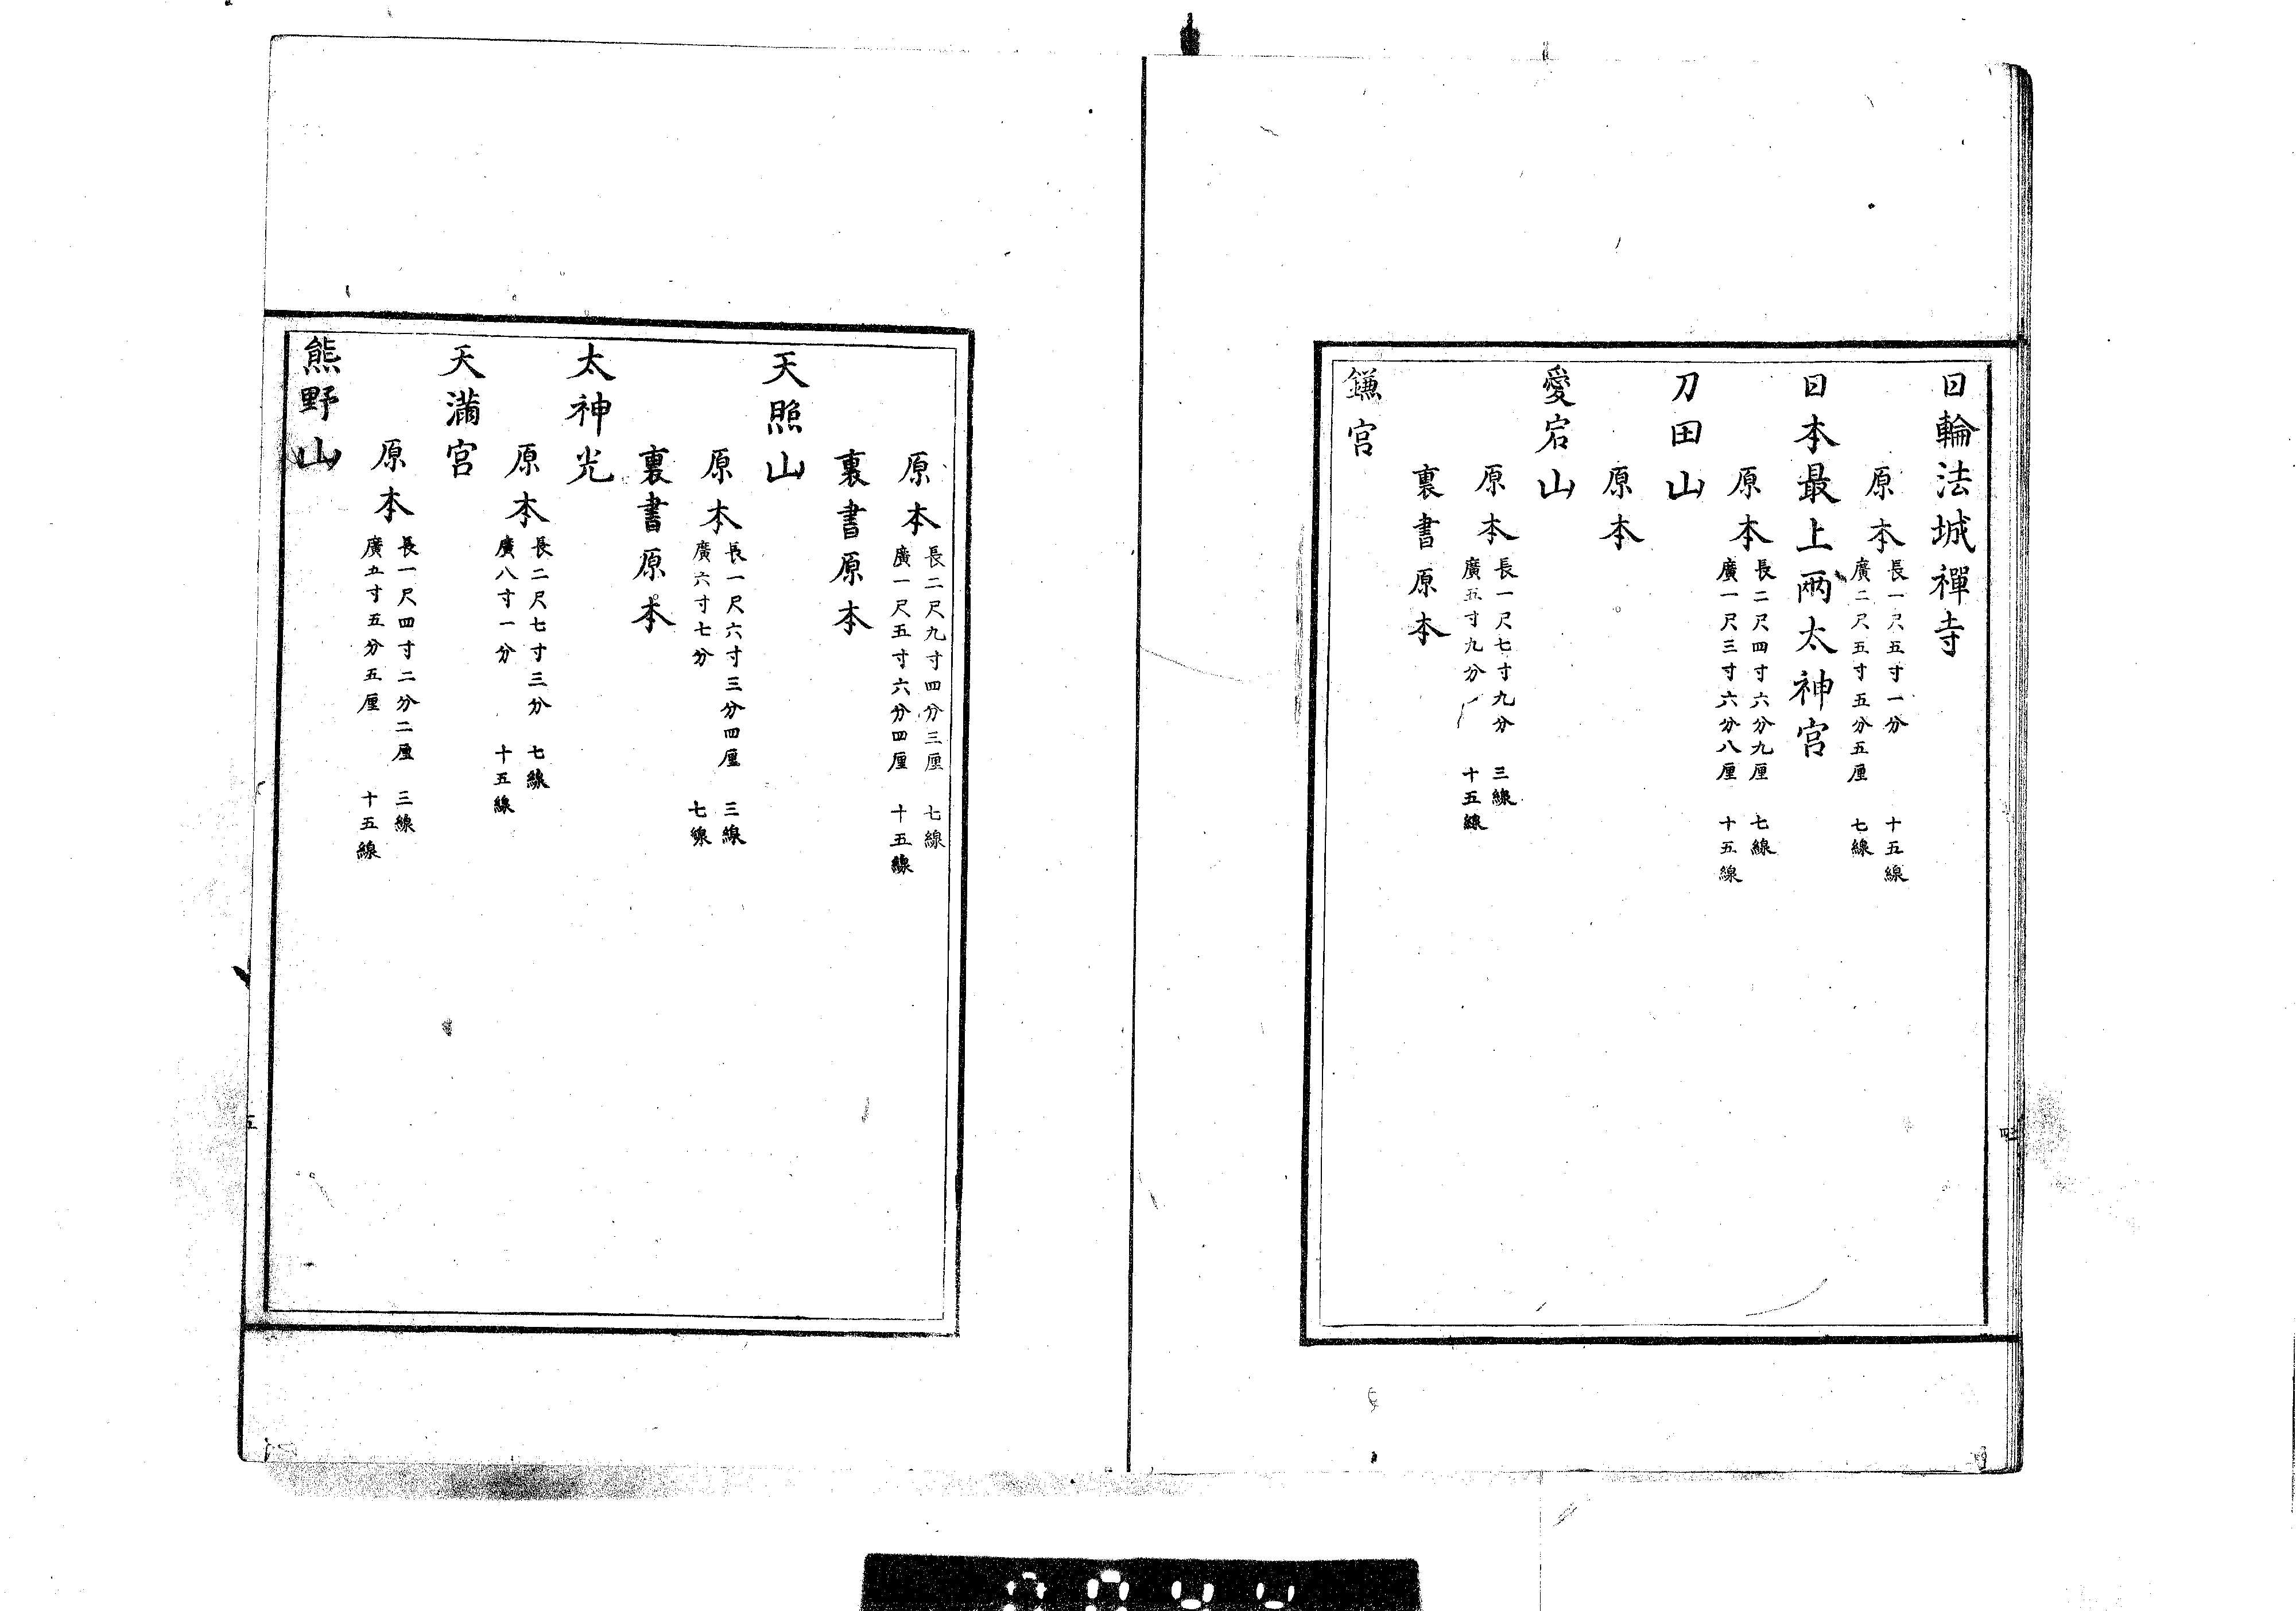 日輪法城禪寺
原本
長一尺五寸一分 十五線
廣二尺五寸五分五厘 七線
日本最上兩太神宮
原本
長二尺四寸六分九厘 七線
廣一尺三寸六分八厘 十五線
刀田山
原本
愛宕山
原本
長一尺七寸九分 三線
廣五寸九分 十五線
裏書原本
鎌宮
四
原本
長二尺九寸四分三厘 七線
廣一尺五寸六分四厘 十五線
裏書原本
天照山
原本
長一尺六寸三分四厘 三線
廣六寸七分 七線
裏書原本
太神光
原本
長二尺七寸三分 七線
廣八寸一分 十五線
天滿宮
原本
長一尺四寸二分二厘 三線
廣五寸五分五厘 十五線
熊野山
五